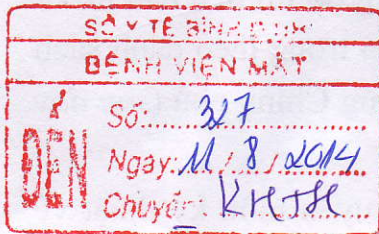 SỞ Y TẾ BÌNH ĐỊNH
BỆNH VIỆN MẮT
ĐẾN
Số: 327
Ngày: 11 / 8 / 2014
Chuyển: KHTH